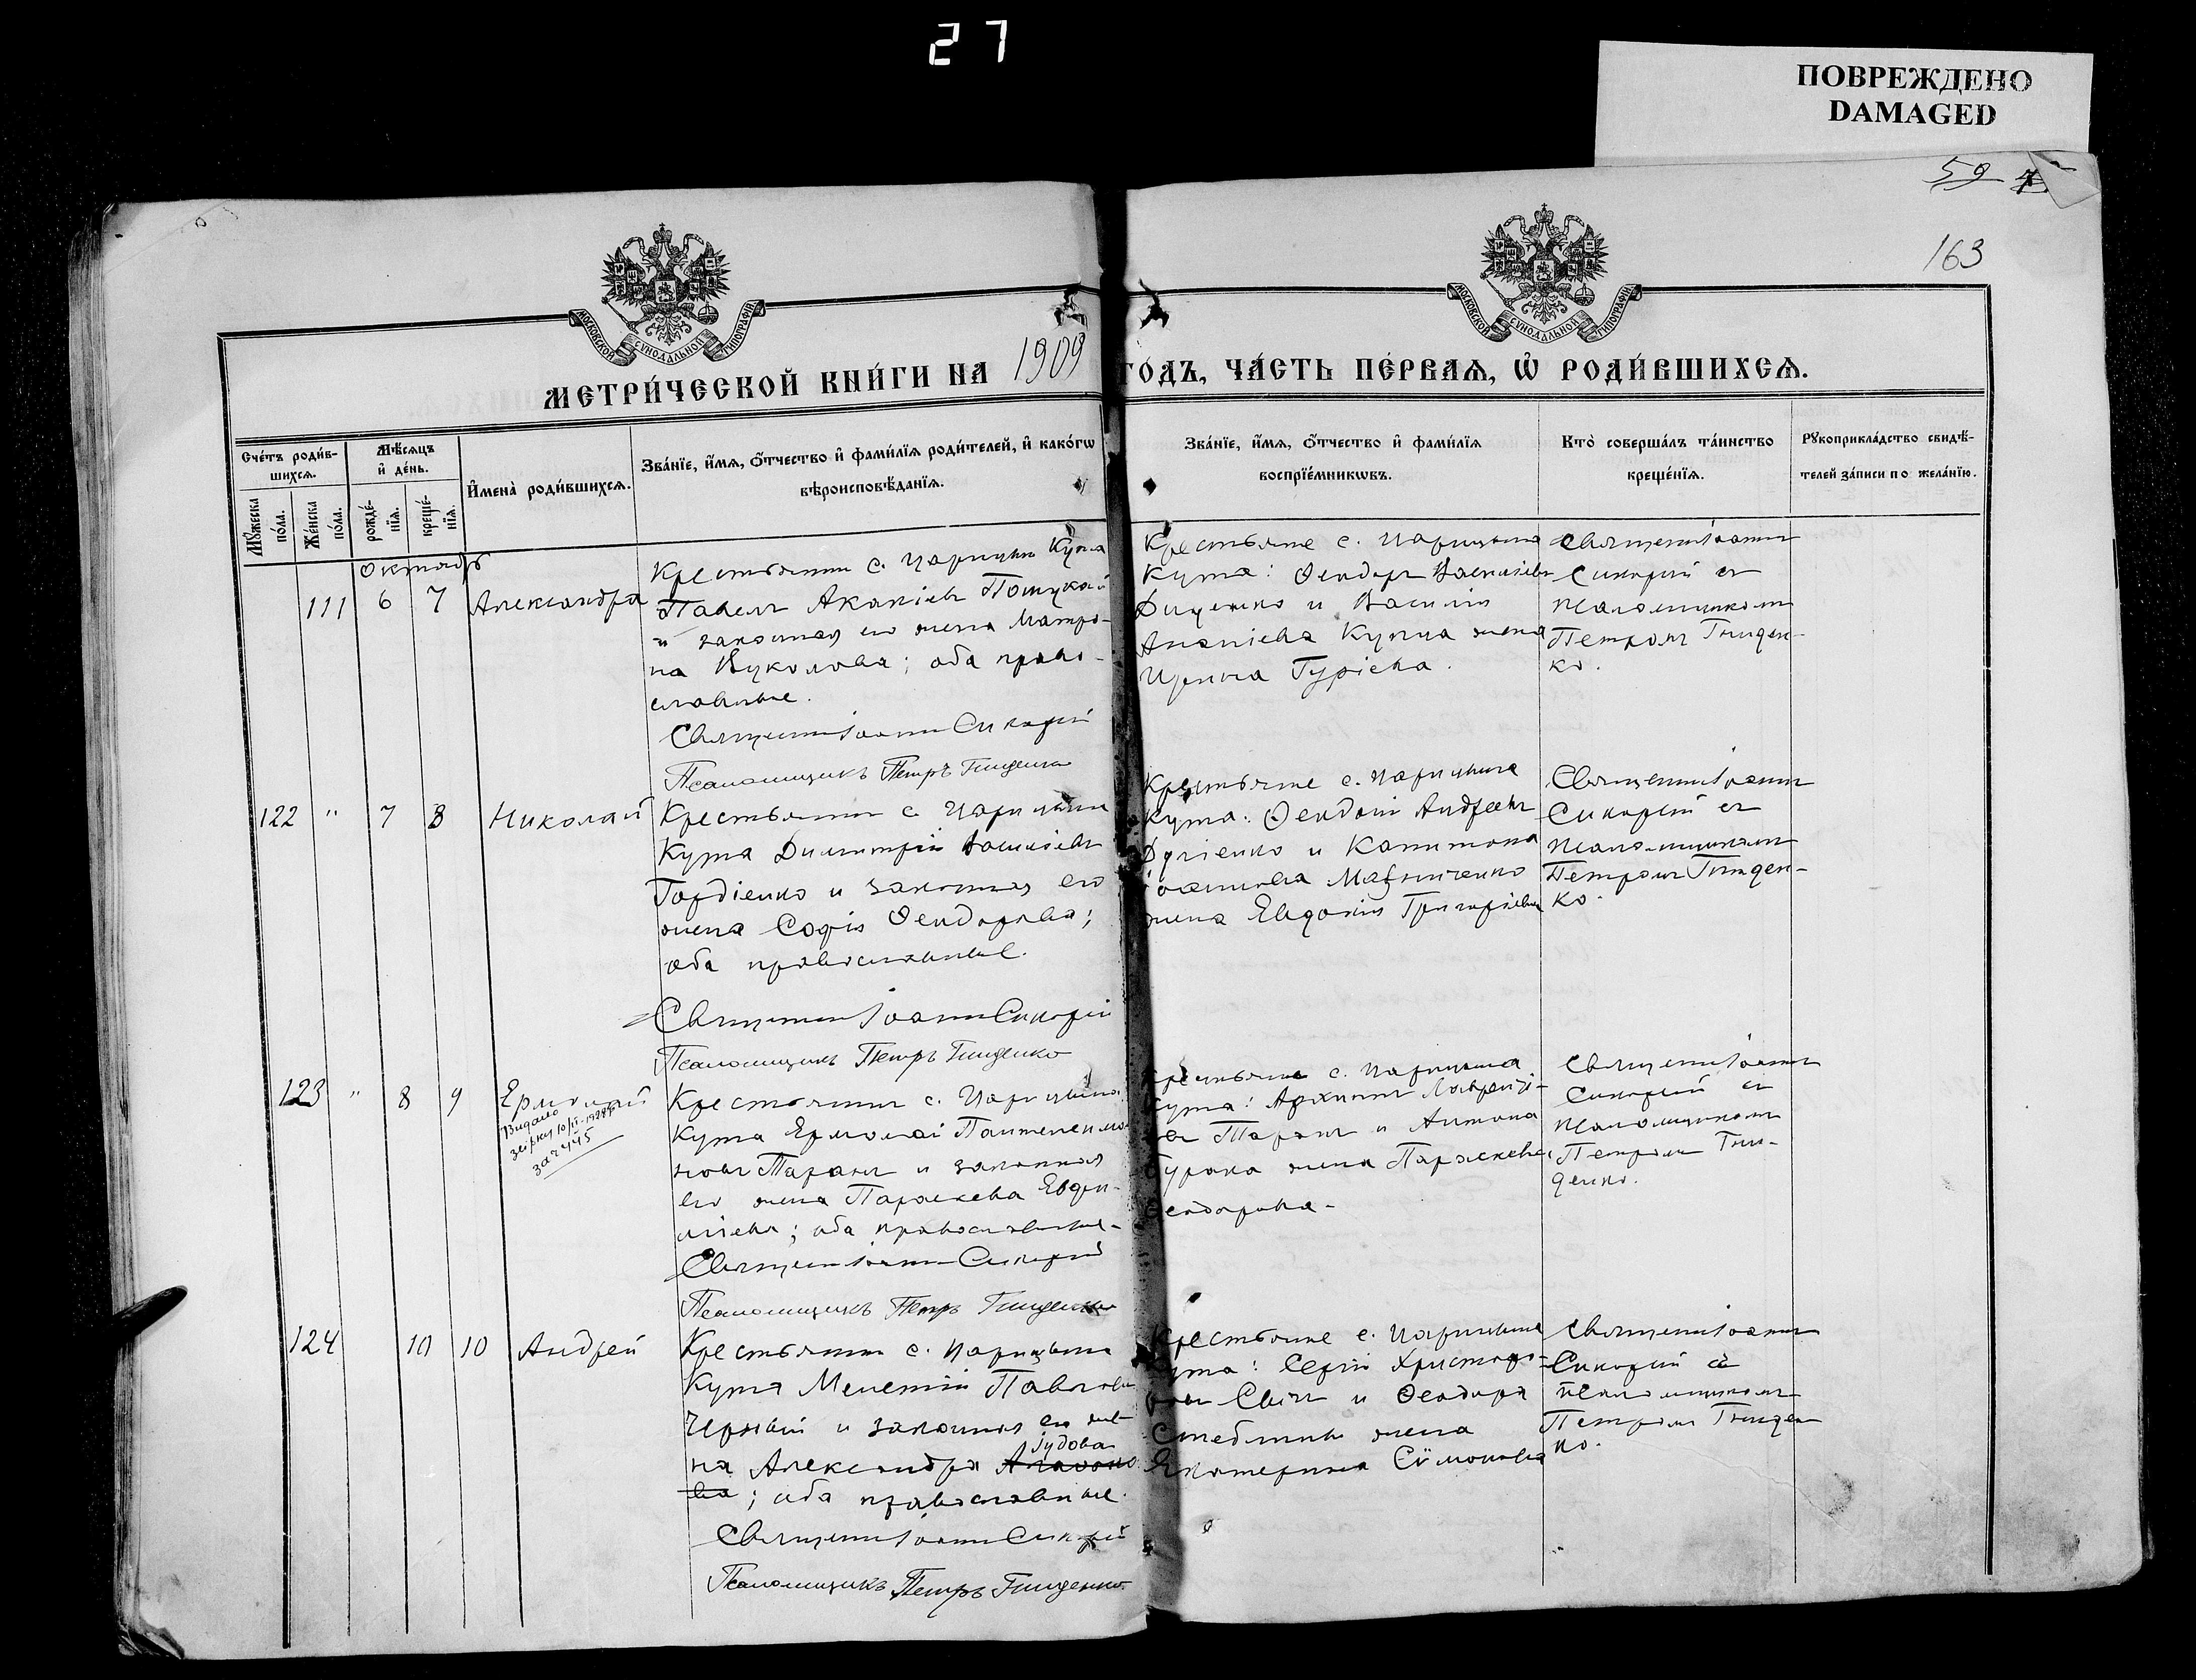 27
ПОВРЕЖДЕНО
DAMAGED
59
163
МОСКОВСКОЙ СѴНОДАЛЬНОЙ ТИПОГРАФІИ
МОСКОВСКОЙ СѴНОДАЛЬНОЙ ТИПОГРАФІИ
МЕТРИ́ЧЕСКОЙ КНИ́ГИ НА 1909 ГОДЪ, ЧА́СТЬ ПЕ́РВАѦ, Ѡ҆ РОДИ́ВШИХСѦ.
Сче́тъ роди́в-
шихсѧ.
Мꙋ́жеска по́ла.
Же́нска по́ла.
Мѣ́сѧцъ
и҆ де́нь.
рожде́-
нїѧ.
креще́-
нїѧ.
И҆мена̀ роди́вшихсѧ.
Зва́нїе, и҆́мѧ, ѻ҆́тчество и҆ фами́лїѧ роди́телей, и҆ како́гѡ
вѣроисповѣ́данїѧ.
Зва́нїе, и҆́мѧ, ѻ҆́тчество и҆ фами́лїѧ
воспрїе́мникѡвъ.
Кто̀ соверша́лъ та́инство
креще́нїѧ.
Рꙋкоприкла́дство свидѣ́-
телей за́писи по жела́нїю.
октябрь
111 6 7 Александра
Крестьянин с. Царицын Кута
Павелъ Акакіевъ
и законная его жена Матро-
на Вуколова; оба право-
славные.
Священ Іоанн Сикорскій
Псаломщикъ Петръ Гниденко
Крестьяне с. Царицына
Кута: Феодоръ Васильевъ
Диценко и Василія
Ананіева Купча жена
Ирина Гуріева.
Священ Іоанн
Сикорскій съ
псаломщикомъ
Петромъ Гниден-
ко.
122 " 7 8 Николай
Крестьянин с. Царицына
Кута Димитрій Васильевъ
Гордіенко и законная его
жена Софія Феодорова;
оба православные.
Священ Іоанн Сикорскій
Псаломщикъ Петръ Гниденко
Крестьяне с. Царицына
Кута: Феодосій Андреевъ
и Капитона
Іоаннова Марниченко
жена Евдокія Григоріева
Священ Іоанн
Сикорскій съ
псаломщикомъ
Петромъ Гниден-
ко.
123 " 8 9 Ермолай
Видано
за ч 445
Крестьянин с. Царицына
Кута Ермолай Пантелеимо-
новъ Таранъ и законная
его жена Параскева Евфи-
міева; оба православные.
Священ Іоанн Сикорскій
Псаломщикъ Петръ Гниденко
Крестьяне с. Царицына
Кута: Архипъ Лаврентi-
евъ Таранъ и Антона
Бурака жена Параскева
Феодорова.
Священ Іоанн
Сикорскій съ
псаломщикомъ
Петромъ Гни-
денко.
124 10 10 Андрей
Крестьянин с. Царицына
Кута Мелетій Павловъ
Чрный и законная его же-
на Александра Іудова
; оба православные.
Священ Іоанн Сикорскій
Псаломщикъ Петръ Гниденко
Крестьяне с. Царицына
Кута: Сергій Христофо-
ровъ Свѣтъ и Феодора
жена
Екатерина Сѵмонова
Священ Іоанн
Сикорскій съ
псаломщикомъ
Петромъ Гниден
ко.